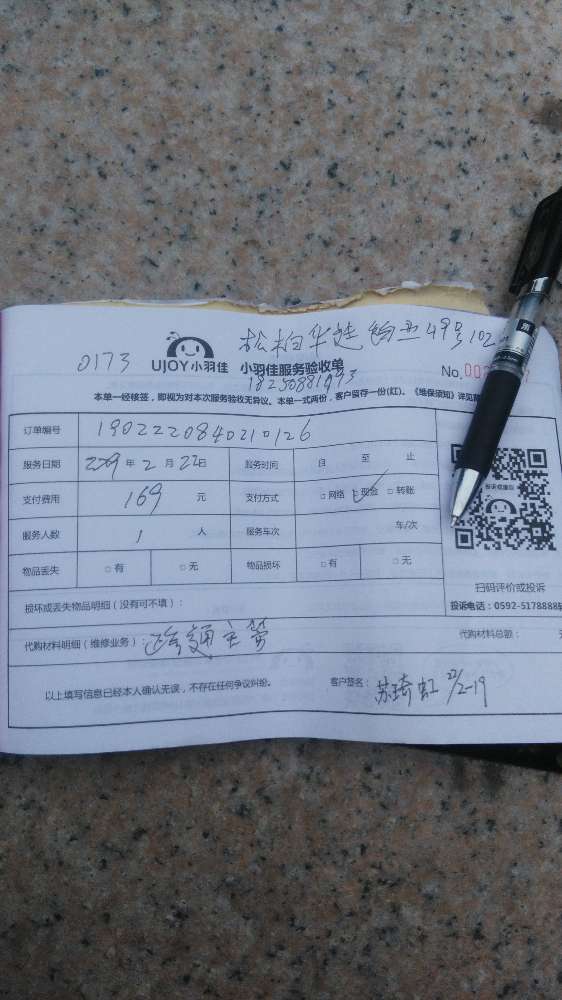 松柏华 49号102
0173 UJOY小羽佳 小羽佳服务验收单 No.00
18250881993
本单一经核签，即视为对本次服务验收无异议。本单一式两份，客户留存一份(红)。《维保须知》详见
订单编号 1902220840210126
服务日期 2019年2月22日 服务时间 自 至 止
支付费用 169 元 支付方式 □网络 ☑现金 □转账
服务人数 1 人 服务车次 车/次
物品丢失 □有 □无 物品损坏 □有 □无
扫码评价或投诉
损坏或丢失物品明细（没有可不填）： 投诉电话：0592-5178888
代购材料明细（维修业务）： 疏通主管 代购材料总额：
以上填写信息已经本人确认无误，不存在任何争议纠纷。 客户签名： 苏琦虹 22/2-19